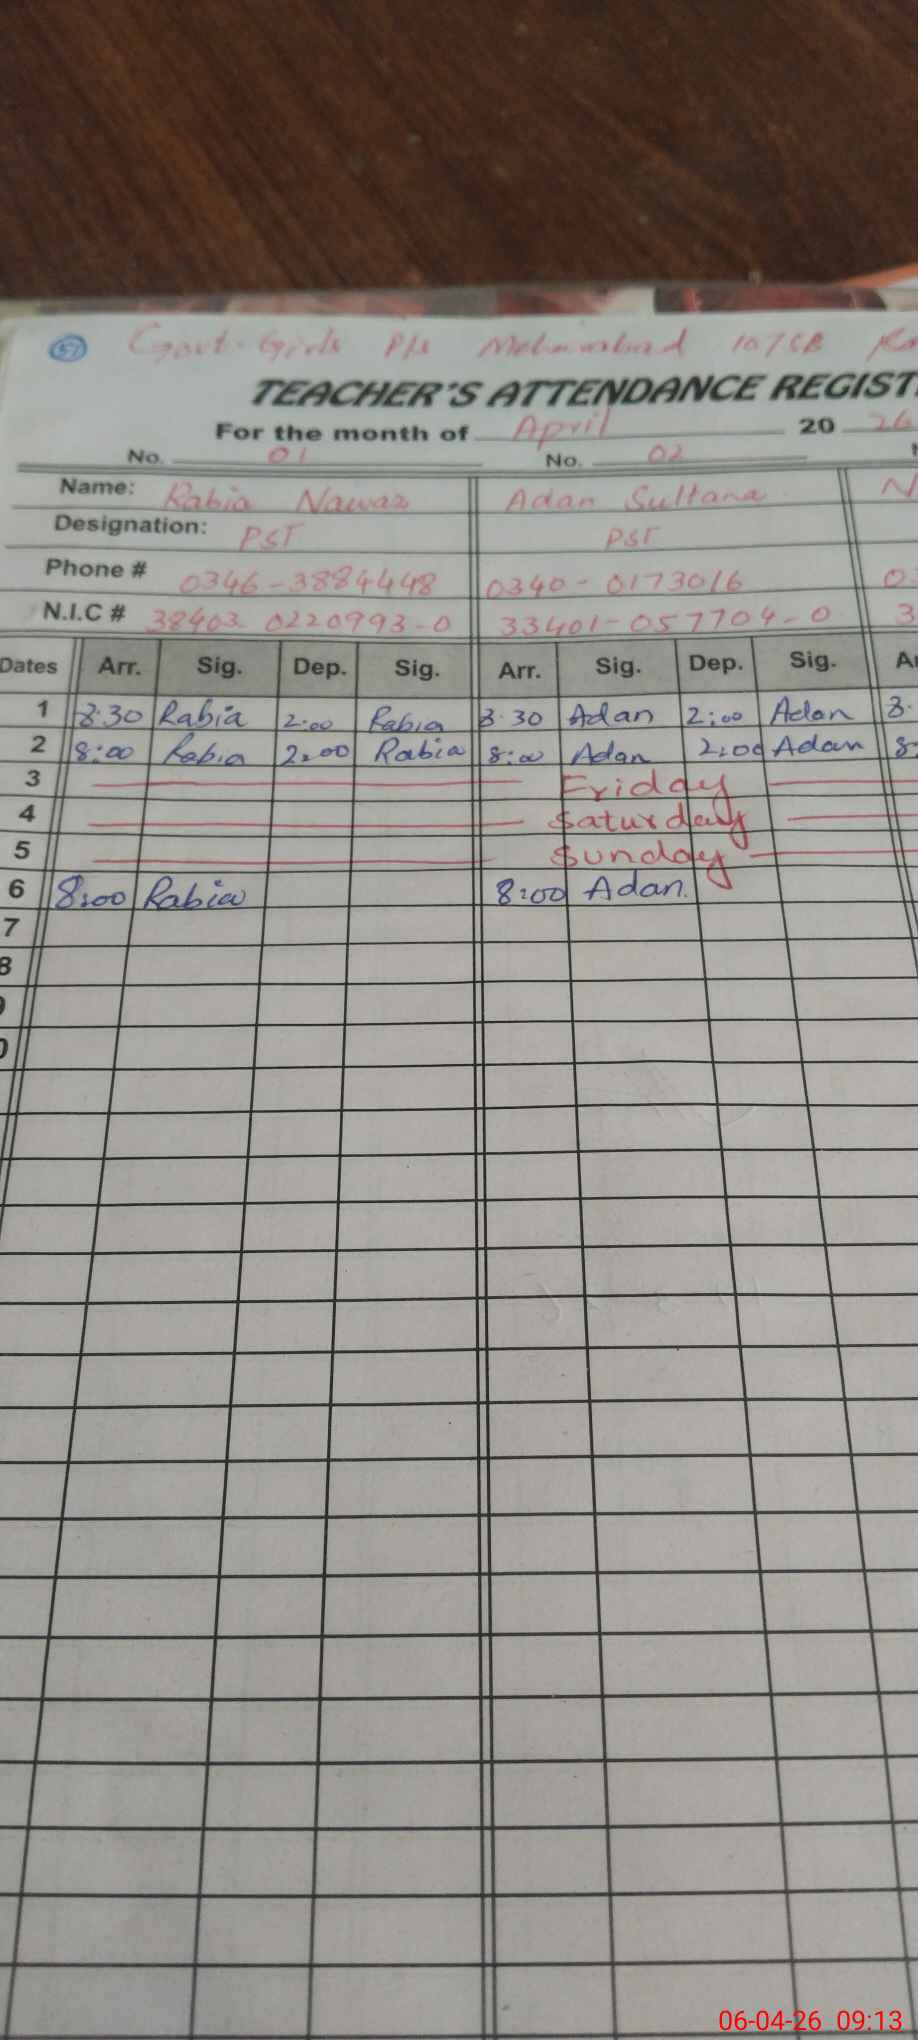 51 Govt. Girls P/s 107SB
TEACHER'S ATTENDANCE REGIST
For the month of April 20 26
No. 01 No. 02
Name: Rabia Nawaz Adan Sultana N
Designation: PST PST
Phone # 0346-3884448 0340-0173016 03
N.I.C # 38403-0220993-0 33401-057704-0 3
Dates Arr. Sig. Dep. Sig. Arr. Sig. Dep. Sig. Ar
1 8:30 Rabia 2:00 Rabia 8:30 Adan 2:00 Adan 8.
2 8:00 Rabia 2:00 Rabia 8:00 Adan 2:00 Adan 8
3 Friday
4 Saturday
5 Sunday
6 8:00 Rabia 8:00 Adan.
7
8
06-04-26 09:13